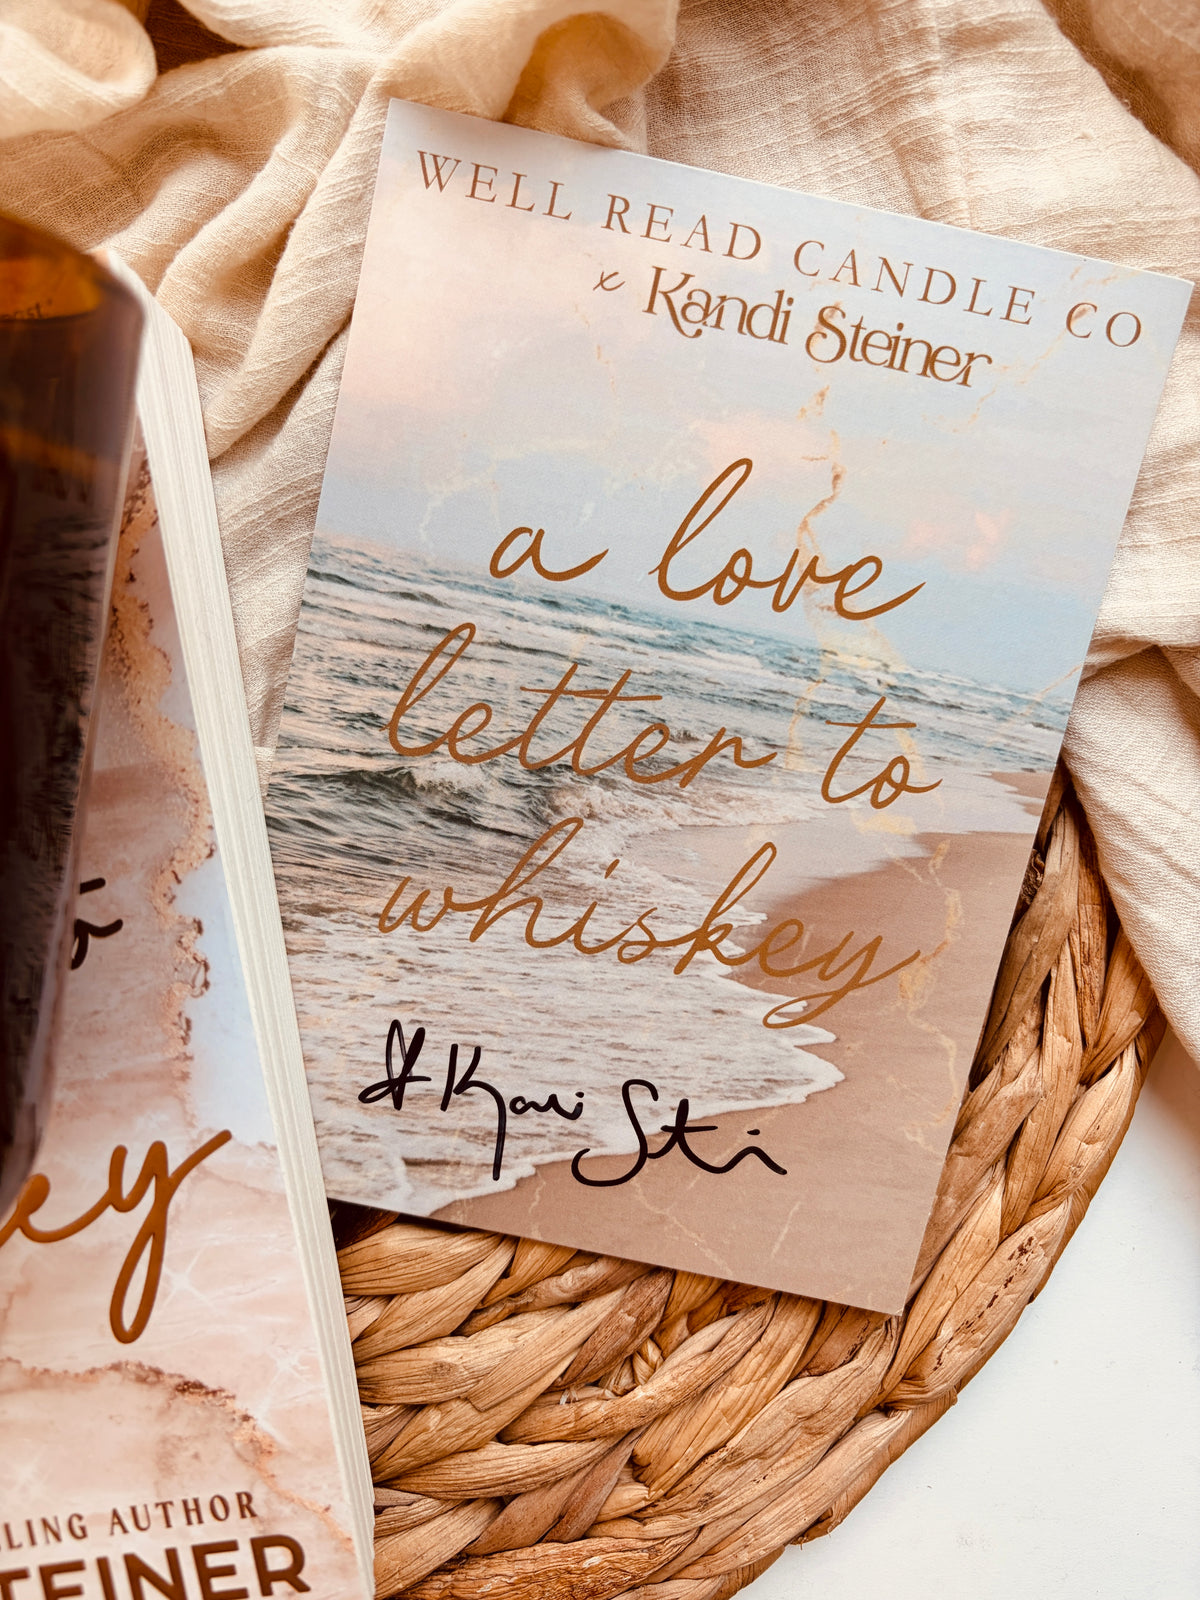 WELL READ CANDLE CO
x Kandi Steiner
a love
letter to
whiskey
Kandi Steiner
ey
LING AUTHOR
TEINER